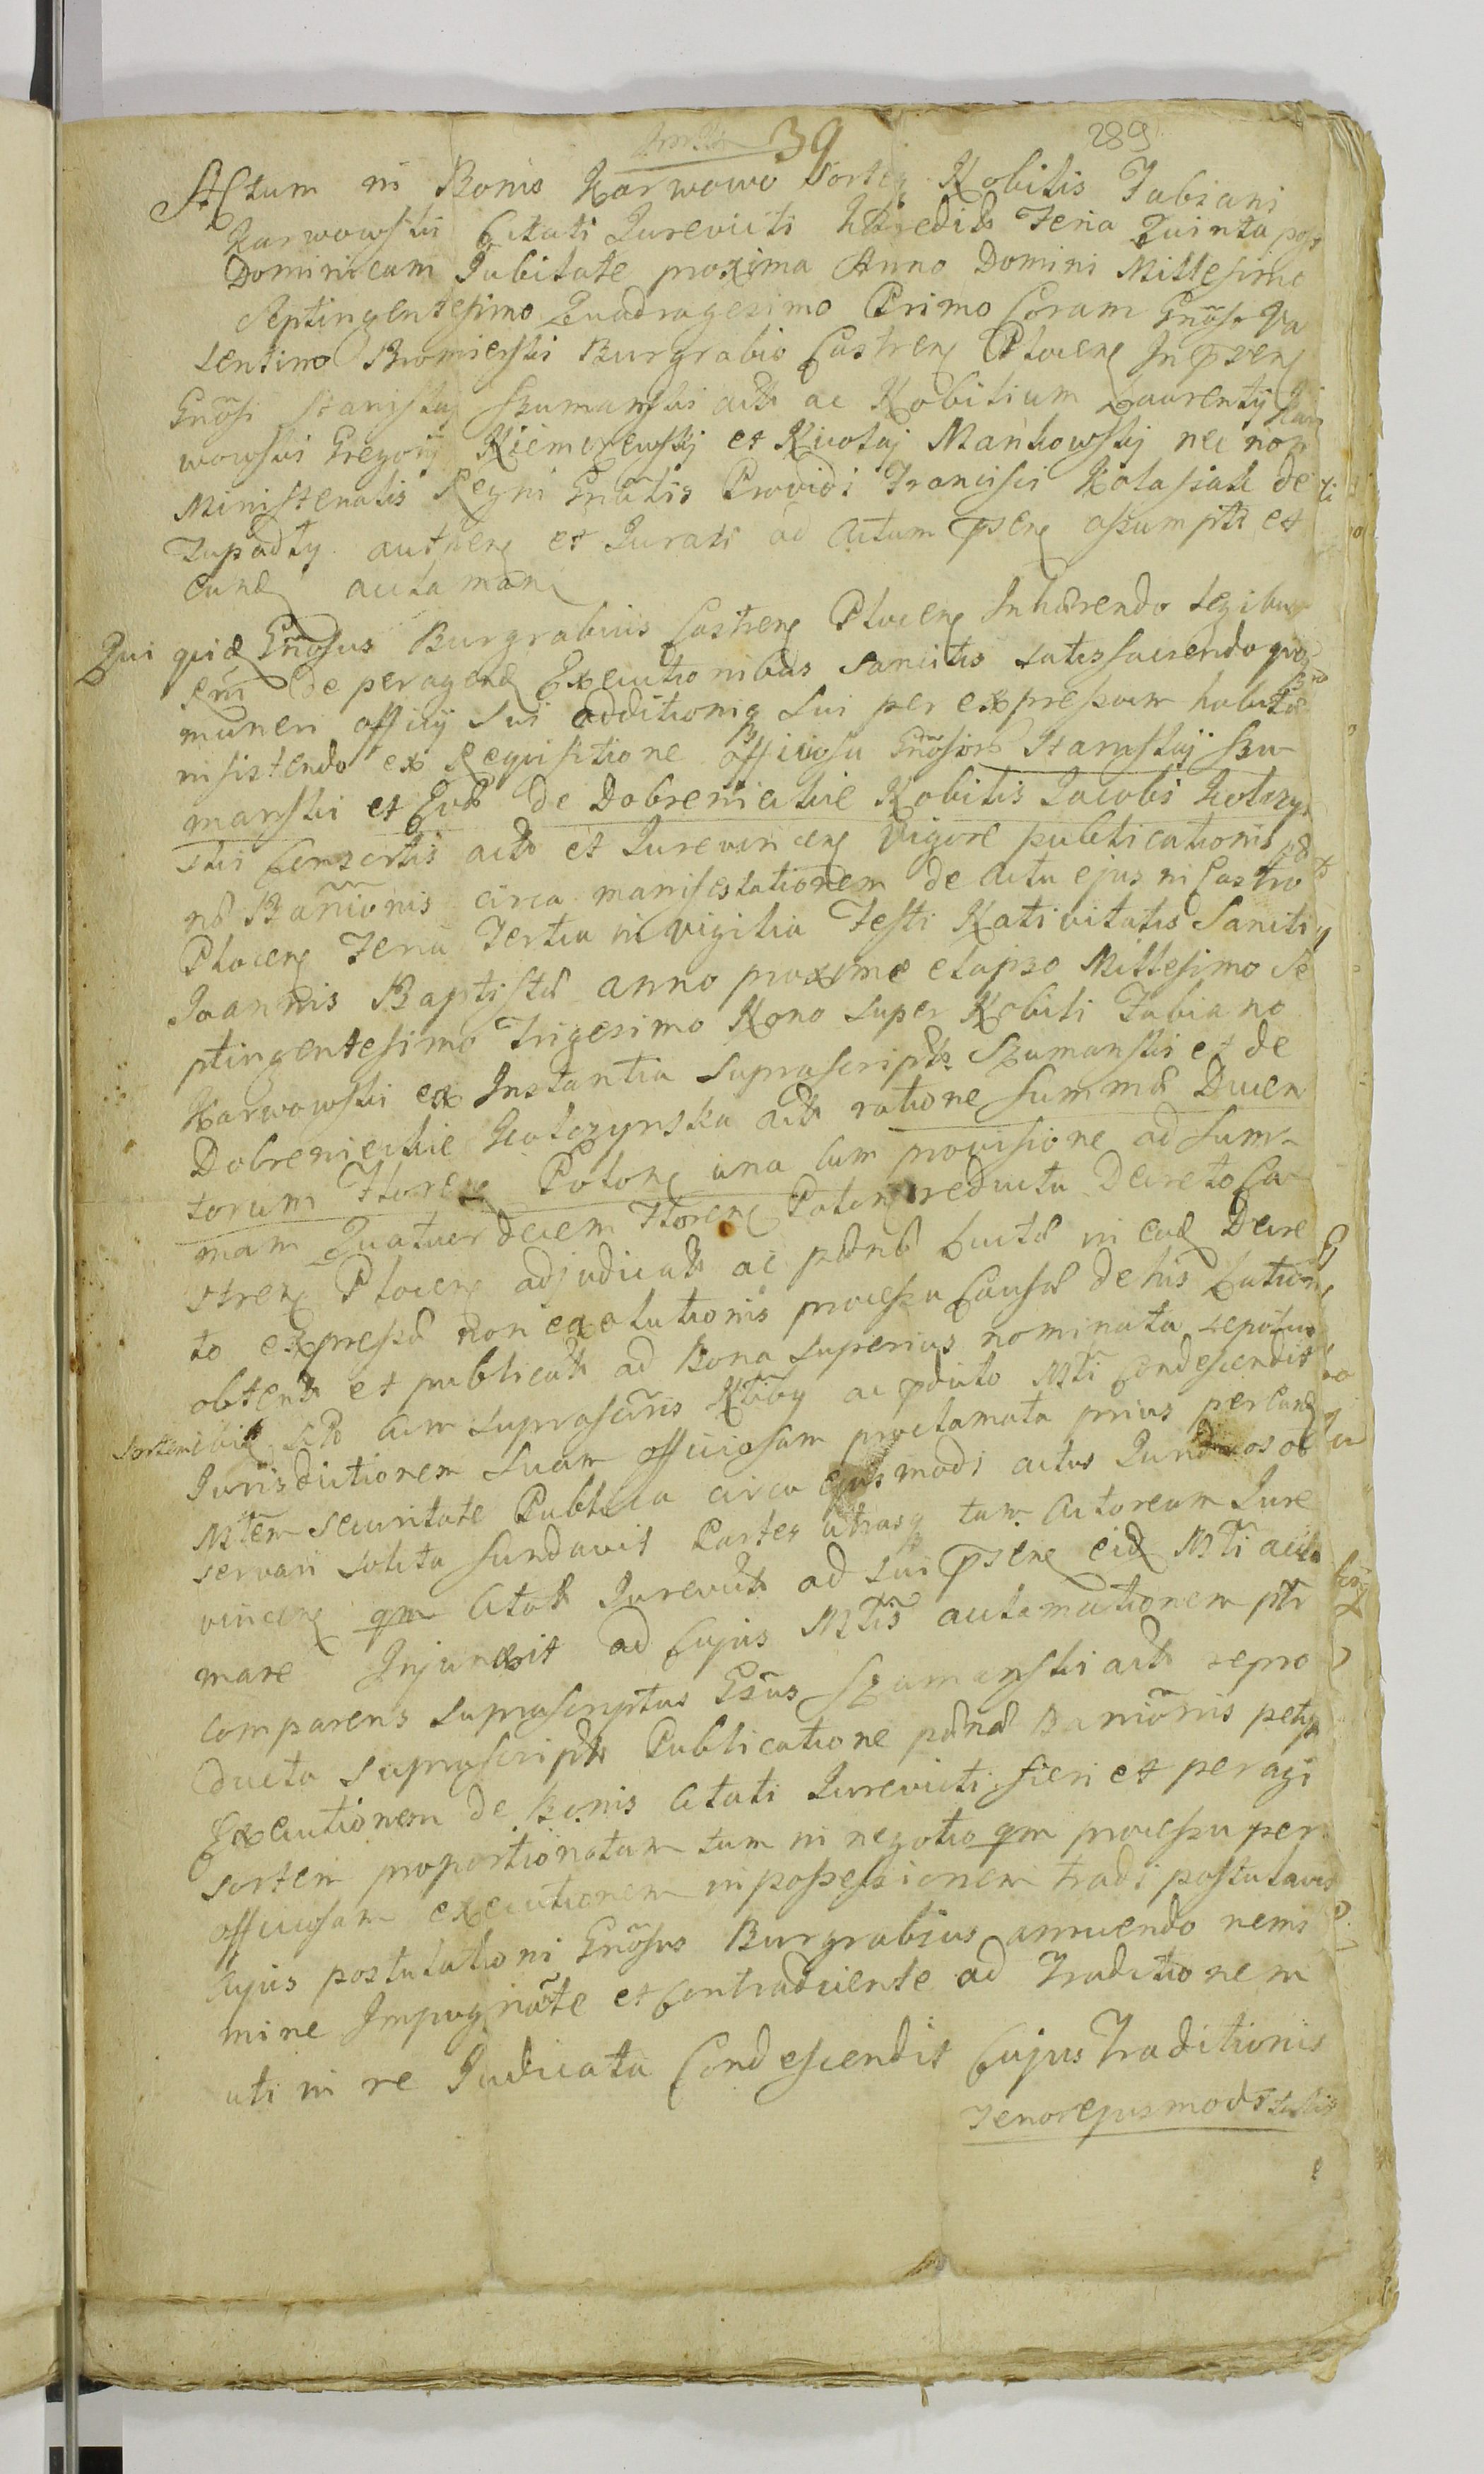 39
289
Actum in Bonis Karwowo Sorteq Nobilis Fabiani
Karwowski Citati Jurevicti hæredit Feria Quinta post
Dominicam Jubilate proxima Anno Domini Millesimo
Septingentesimo Quadragesimo Primo Coram Gnōso Va
lentino Bromierski Burgrabio Castren Plocen In pñen
Gnōsi Stanislaj Szumanski act ac Nobilium Laurentij Kar
wowski Gregorij Niemirewskij et Nicolaj Mańkowskij nec non
Ministerialis Regni Gñalis Providi Francisci Kolasiak de
Zupadły authen et Jurati ad Actum psen assumpti et
eund acclaman
Qui quid Gnōsus Burgrabius Castren Plocen Inhærendo legibus
Rñi de peragend Executionibus Sancitis satisfaciendo
muneri officij sui additionis sui per expressum habita
insistendo ex Requisitione officiosa Gnōsior Stanislaj Szu
manski et Evæ de Dobrenieckie Nobilis Jacobi Kolczyn
ski Consortis act et Jurevincen vigore publicationis pæ
næ Bañionis circa manifestationem de Actu ejus in Castro
Plocen Feria Tertia in vigilia Festi Nativitatis Sancti
Joannis Baptistæ anno proxime elapso Millesimo Se
ptingentesimo Trigesimo Nono super Nobili Fabiano
Karwowski ex Instantia suprascript Szumanski et de
Dobrenieckie Kolczynska act ratione summæ Ducen
torum Floren Polon una cum provisione ad sum
mam Quatuordecem Floren Polon reducta Decreto Ca
stren Plocen adjudicat ac pænæ Luitæ in eod Decre
to expressæ non exolutionis processu Causæ de his Lution
obtent et publicat ad Bona superius nominata
Sortem cum suprascris Nlibg ac pdicto Mti Condescendit
Jurisdictionem suam officiosam proclamata prius per eund
Mtem securitate Publica circa ejusmodi actus Juridicos ob
servari solita fundavit Partes utrasq tam Actoream Jure
vincen qm Citat Jurevict ad sui psen eid Mti accla
mare Injunxit ad Cujus Mtis acclamationem ptr
comparens suprascriptus Gñsus Szumanski act repro
ducta suprascript Publicatione pænæ Bañionis petijt
Executionem de Bonis Citati Jurevicti fieri et peragi
sortem proportionatam tum in negotio qm processu per
officiosam executionem in possessionem tradi postulavit
Cujus postulationi Gnōsus Burgrabius annuendo nemi
mine Impugnāte et Contradicente ad Traditionem
uti in re Judicata Condescendit Cujus Traditionis
Tenor ejusmodi